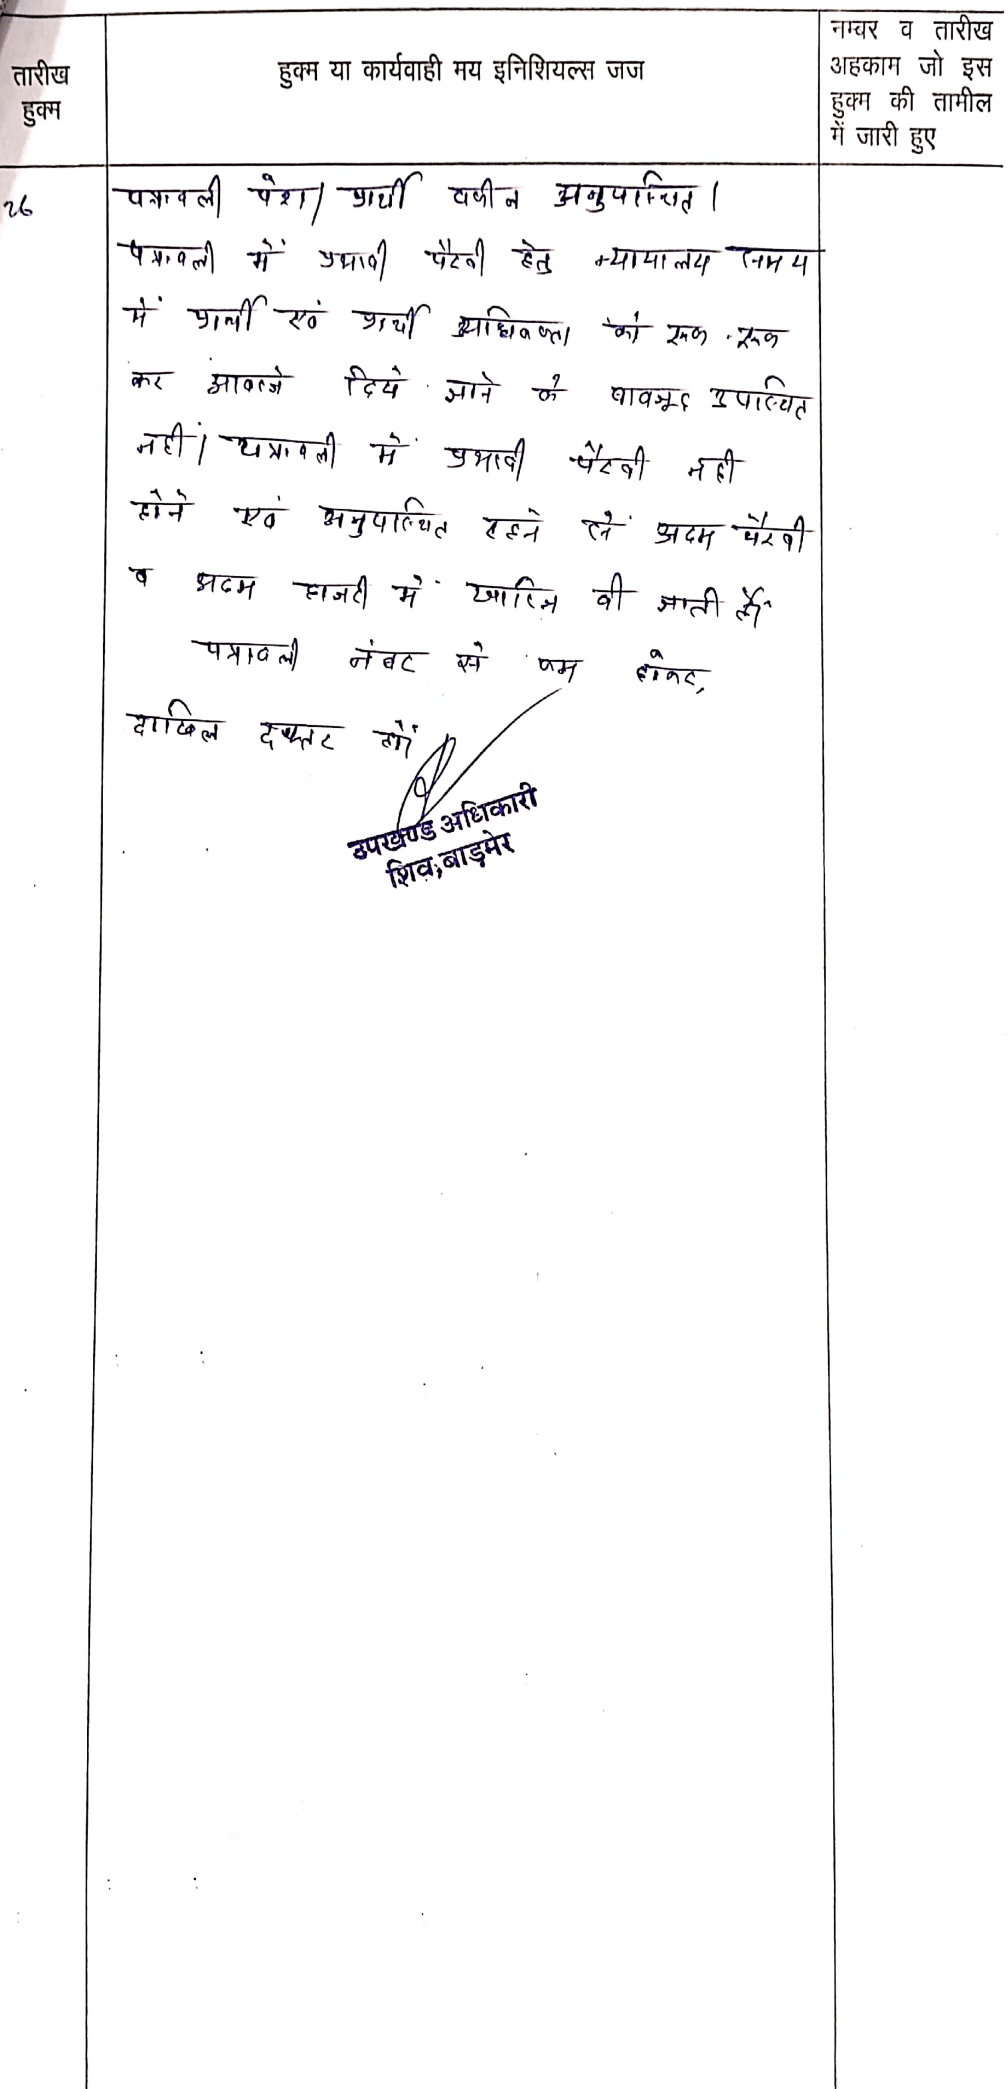 तारीख
हुक्म
हुक्म या कार्यवाही मय इनिशियल्स जज
नम्बर व तारीख
अहकाम जो इस
हुक्म की तामील
में जारी हुए
26
पत्रावली पेश। प्रार्थी वकील अनुपस्थित।
पत्रावली में प्रभावी पैरवी हेतु न्यायालय समय
में प्रार्थी एवं प्रार्थी अधिवक्ता को रूक-रूक
कर आवाजे दिये जाने के बावजूद उपस्थित
नहीं। पत्रावली में प्रभावी पैरवी नही
होने एवं अनुपस्थित रहने से अदम पैरवी
व अदम हाजरी में खारिज की जाती है।
पत्रावली नंबर से कम होकर,
दाखिल दफ्तर हो।
उपखण्ड अधिकारी
शिव, बाड़मेर